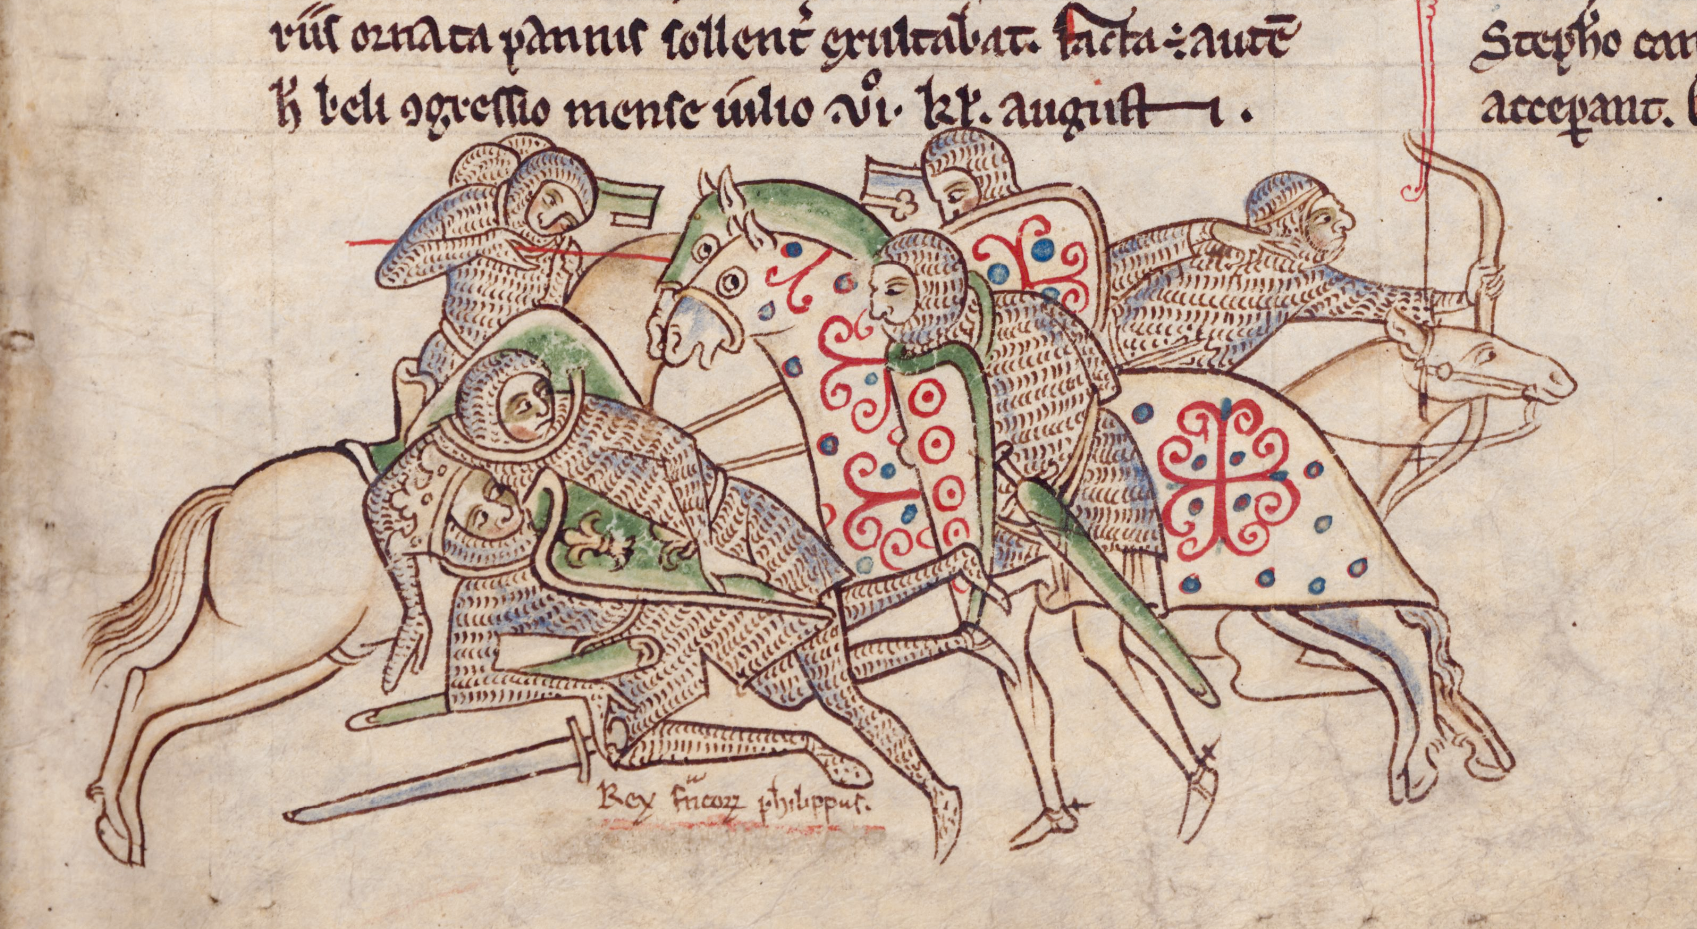 riis ornata pannis sollenť exultabat. Facta ÷ autē
h̄ beli ꝯgressio mense iulio .vi̊. kł. augusti.
Stepħo
acceperant.
Rex francoꝝ philippus.